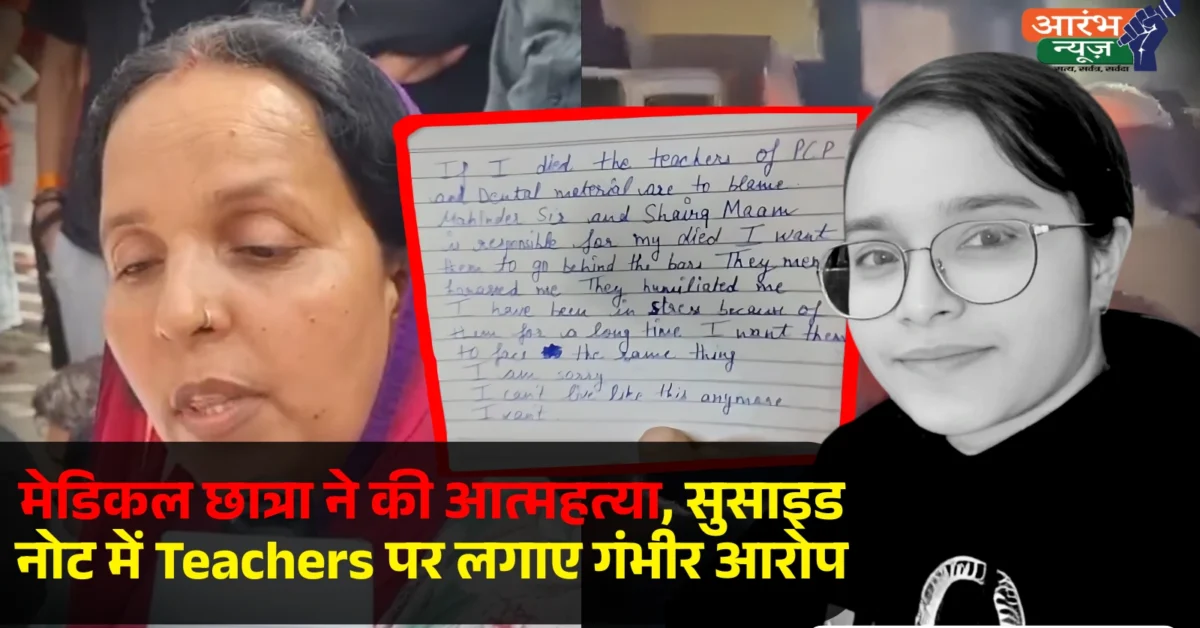 आरंभ
न्यूज़
सत्य, सर्वत्र, सर्वदा
If I died the teachers of PCP
and Dental material are to blame.
Mahinder Sir and Shairg Maam
is responsible for my died I want
them to go behind the bars They men
harassed me They humiliated me
I have been in stress because of
them for a long time I want them
to face the same thing
I am sorry
I can't live like this anymore
I want
मेडिकल छात्रा ने की आत्महत्या, सुसाइड
नोट में Teachers पर लगाए गंभीर आरोप